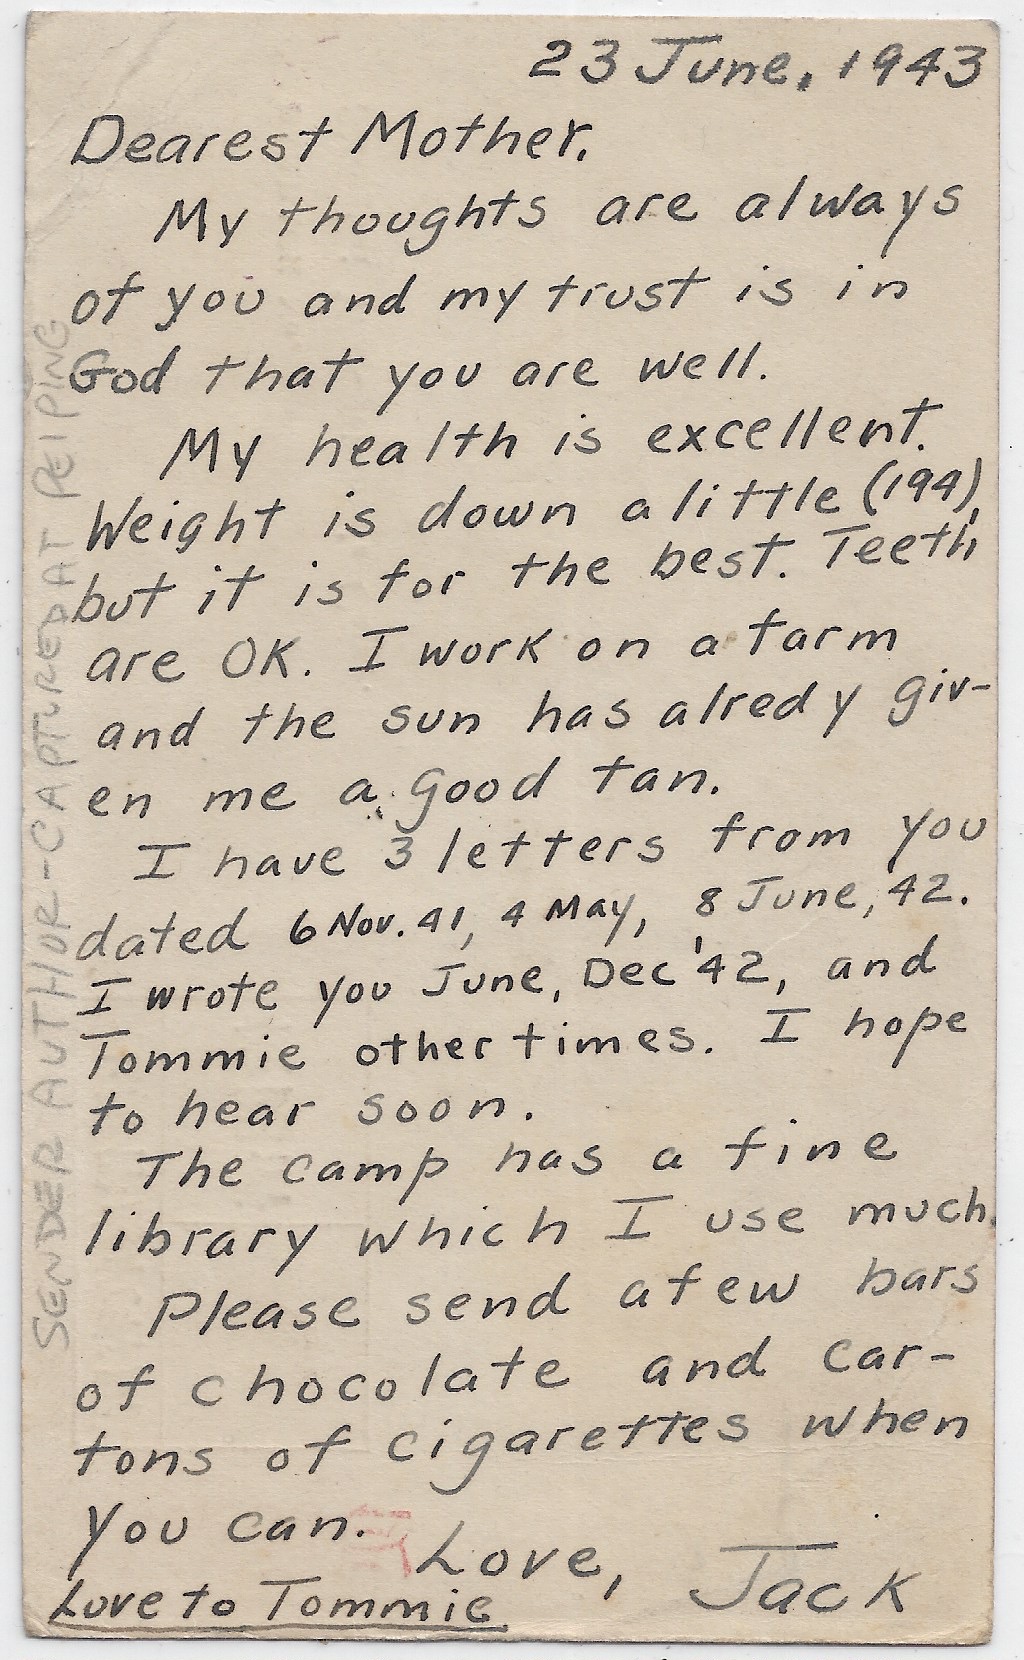 23 June, 1943
Dearest Mother,
My thoughts are always
of you and my trust is in
God that you are well.
My health is excellent.
Weight is down a little (194),
but it is for the best. Teeth
are OK. I work on a farm
and the sun has alredy giv-
en me a good tan.
I have 3 letters from you
dated 6 Nov. 41, 4 May, 8 June, 42.
I wrote you June, Dec '42, and
Tommie other times. I hope
to hear soon.
The camp has a fine
library which I use much.
Please send a few bars
of chocolate and car-
tons of cigarettes when
you can.
Love, Jack
Love to Tommie
SENDER AUTHOR-CAPTURED AT PEIPING